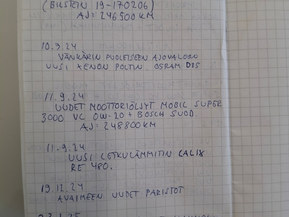 (BILSTEIN 19-170206)
AJ: 246500 KM
10.9.24
VÄNKÄRIN PUOLEISEEN AJOVALOON
UUSI XENON POLTIN OSRAM D1S
11.9.24
UUDET MOOTTORIÖLJYT MOBIL SUPER
3000 VC 0W-20 + BOSCH SUOD
AJ: 248800 KM
11.9.24
UUSI LETKULÄMMITIN CALIX
RE 480.
19.12.24
AVAIMEEN UUDET PARISTOT